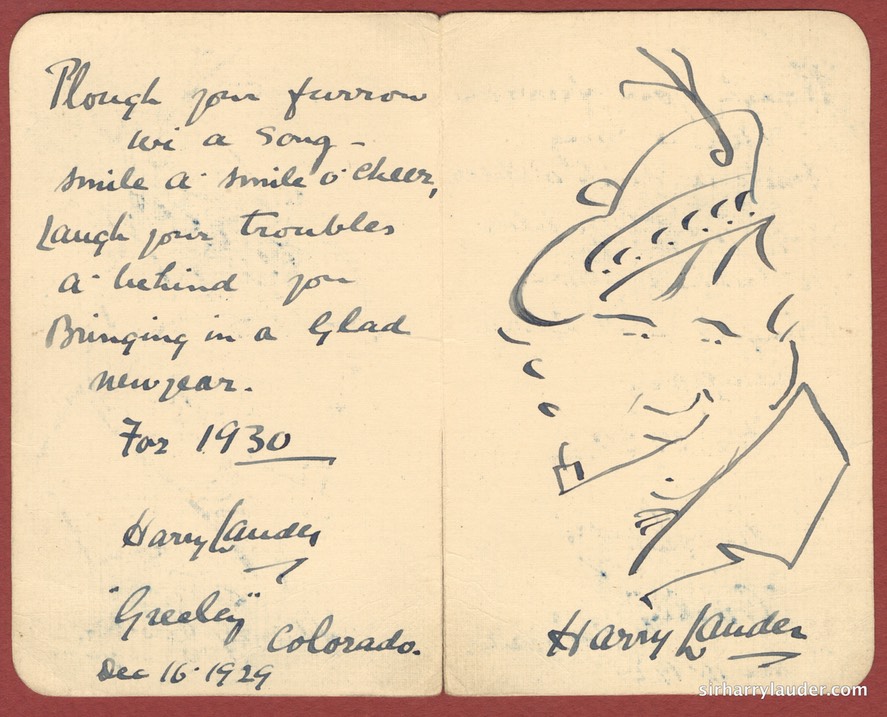 Plough your furrow
wi a Song -
Smile a' smile o' Cheer,
Laugh your troubles
a' behind you
Bringing in a Glad
new year.
For 1930
Harry Lauder
"Greeley"
Colorado.
Dec 16-1929
Harry Lauder
sirharrylauder.com